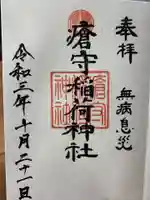 奉拝
無病息災
瘡守稲荷神社
令和三年十月二十一日